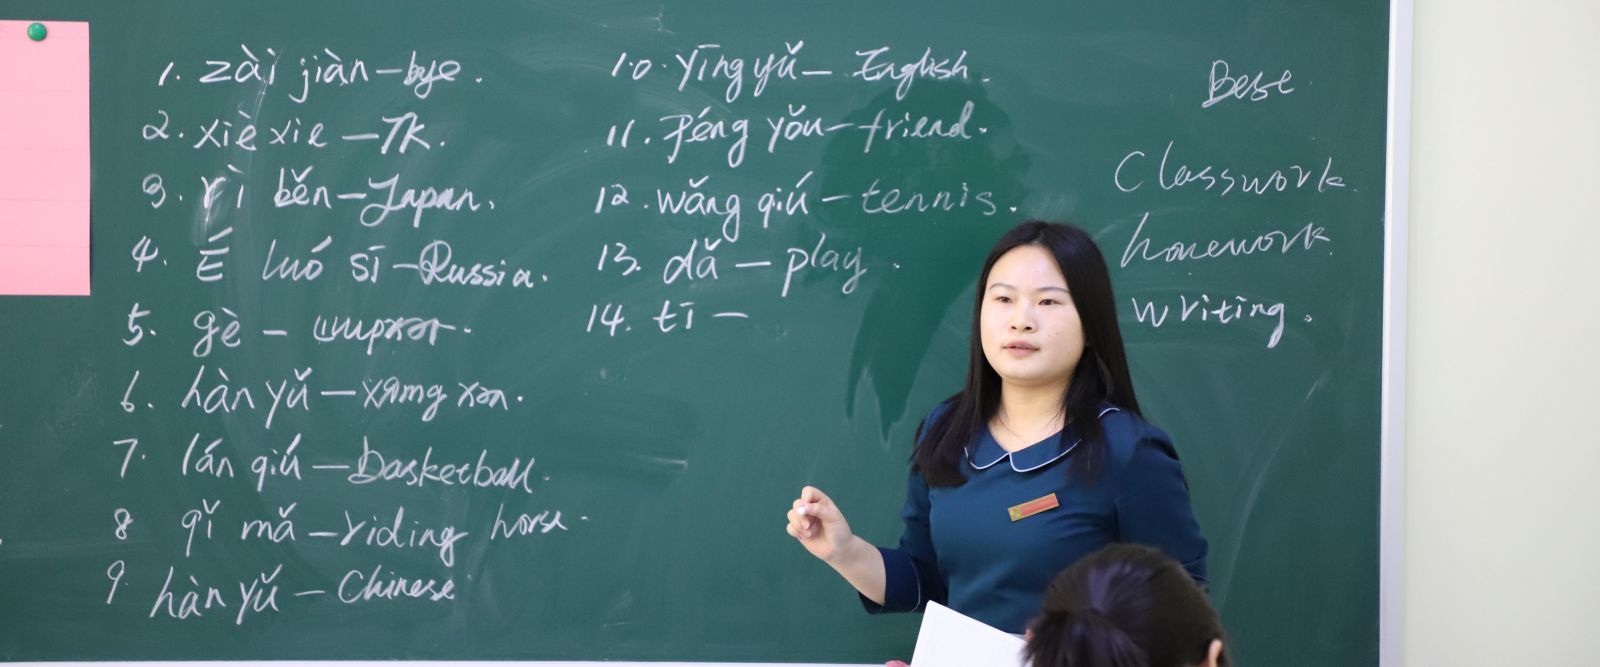 1. zài jiàn – bye.
2. xiè xie – TK.
3. rì běn – Japan.
4. É luó sī – Russia.
5. gè – ширхэг.
6. hàn yǔ – хятад хэл.
7. lán qiú – basketball.
8 qǐ mǎ – riding horse.
9. hàn yǔ – Chinese
10. yīng yǔ – English.
11. Péng yǒu – friend.
12. wǎng qiú – tennis.
13. dǎ – play.
14. tī –
Classwork.
homework.
writing.